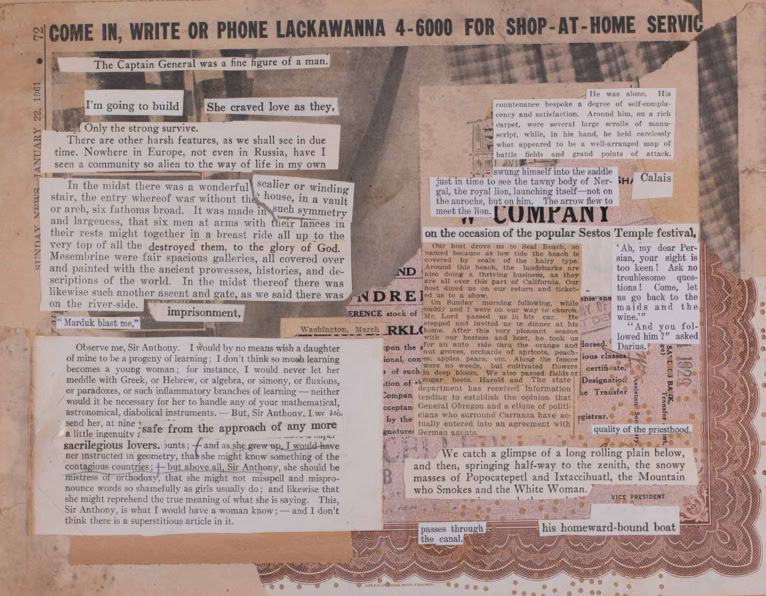 COME IN, WRITE OR PHONE LACKAWANNA 4-6000 FOR SHOP-AT-HOME SERVIC
SUNDAY NEWS, JANUARY 22, 1961 • 72
The Captain General was a fine figure of a man.
I'm going to build
She craved love as they,
Only the strong survive.
There are other harsh features, as we shall see in due
time. Nowhere in Europe, not even in Russia, have I
seen a community so alien to the way of life in my own
In the midst there was a wonderful
scalier or winding
stair, the entry whereof was without the
house, in a vault
or arch, six fathoms broad. It was made in
such symmetry
and largeness, that six men at arms with their lances in
their rests might together in a breast ride all up to the
very top of all the destroyed them, to the glory of God.
Mesembrine were fair spacious galleries, all covered over
and painted with the ancient prowesses, histories, and de-
scriptions of the world. In the midst thereof there was
likewise such another ascent and gate, as we said there was
on the river-side.
imprisonment,
"Marduk blast me,"
Washington, March
Observe me, Sir Anthony. I would by no means wish a daughter
of mine to be a progeny of learning; I don't think so much learning
becomes a young woman; for instance, I would never let her
meddle with Greek, or Hebrew, or algebra, or simony, or fluxions,
or paradoxes, or such inflammatory branches of learning — neither
would it be necessary for her to handle any of your mathematical,
astronomical, diabolical instruments. — But, Sir Anthony, I
send her, at nine
safe from the approach of any more
a little ingenuity
sacrilegious lovers.
ounts; — and as she grew up, I would have
her instructed in geometry, that she might know something of the
contagious countries; — but above all, Sir Anthony, she should be
mistress of orthodoxy, that she might not misspell and mispro-
nounce words so shamefully as girls usually do; and likewise that
she might reprehend the true meaning of what she is saying. This,
Sir Anthony, is what I would have a woman know; — and I don't
think there is a superstitious article in it.
He was alone. His
countenance bespoke a degree of self-compla-
cency and satisfaction. Around him, on a rich
carpet, were several large scrolls of manu-
script, while, in his hand, he held carelessly
what appeared to be a well-arranged map of
battle fields and grand points of attack.
swung himself into the saddle
just in time to see the tawny body of Ner-
gal, the royal lion, launching itself—not on
the aurochs, but on him. The arrow flew to
meet the lion.
SHA
Calais
COMPANY
on the occasion of the popular Sestos Temple festival,
Our host drove us to Seal Beach, so
named because at low tide the beach is
covered by seals of the hairy type.
Around this beach, the landsharks are
also doing a thriving business, as they
are all over this part of California. Our
host dined us on our return and ticket-
ed us to a show.
On Sunday morning following, while
buddy and I were on our way to church,
Mr. Lord passed us in his car. He
stopped and invited us to dinner at his
home. After this very pleasant season
with our hostess and host, he took us
for an auto ride thru the orange and
nut groves, orchards of apricots, peach-
es, apples, pears, etc. Along the fences
were no weeds, but cultivated flowers
in deep bloom. We also passed fields of
sugar beets. Harold and The state
department has received information
tending to establish the opinion that
General Obregon and a clique of politi-
cians who surround Carranza have ac-
tually entered into an agreement with
German agents.
'Ah, my dear Per-
sian, your sight is
too keen! Ask no
troublesome ques-
tions! Come, let
us go back to the
maids and the
wine.'"
"And you fol-
lowed him?" asked
Darius.
ND
NDRE
ERENCE stock of
RKLO
certificate,
Designation
the Transfer
quality of the priesthood.
We catch a glimpse of a long rolling plain below,
and then, springing half-way to the zenith, the snowy
masses of Popocatepetl and Ixtaccihuatl, the Mountain
who Smokes and the White Woman.
VICE PRESIDENT
passes through
the canal.
his homeward-bound boat